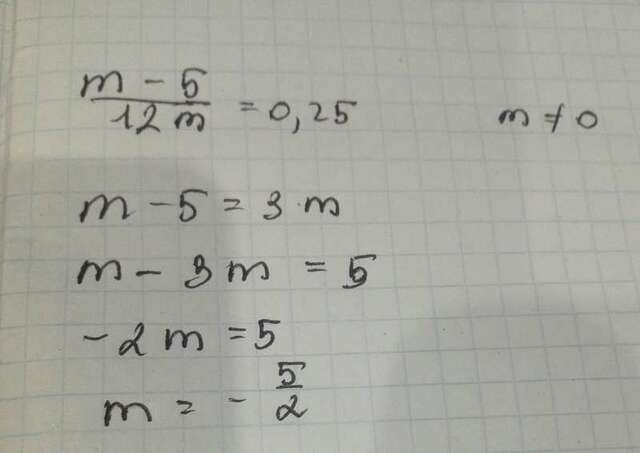 m - 5 / 12 m = 0,25 m ≠ 0
m - 5 = 3 · m
m - 3 m = 5
- 2 m = 5
m = - 5/2